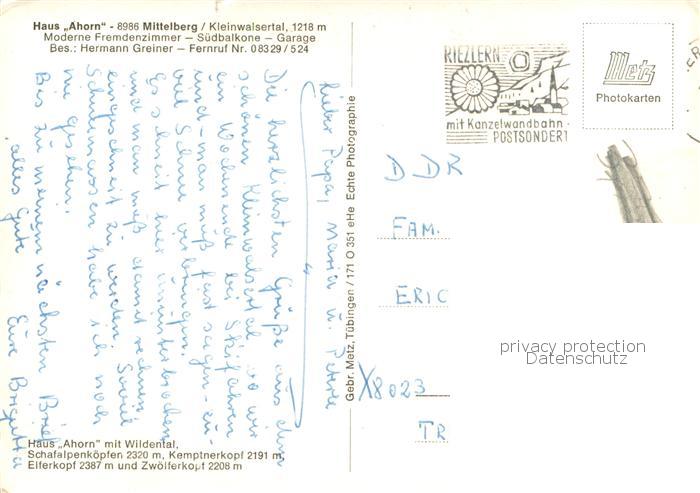 Haus „Ahorn" - 8986 Mittelberg / Kleinwalsertal, 1218 m
Moderne Fremdenzimmer — Südbalkone — Garage
Bes.: Hermann Greiner — Fernruf Nr. 08329 / 524
Lieber Papa, Maria u. Peterle
Die herzlichsten Grüße aus dem
schönen Kleinwalsertal, wo wir
ein Wochenende bei Skifahren
und - man muß fast sagen - zu-
viel Schnee verbringen.
Es schneit hier ununterbrochen
und man muß damit rechnen,
eingeschneit zu werden. Soviel
Schneemassen habe ich noch
nie gesehen.
Bis zu meinem nächsten Brief
alles Gute
Eure Brigitta
Haus „Ahorn" mit Wildental,
Schafalpenköpfen 2320 m, Kemptnerkopf 2191 m,
Elferkopf 2387 m und Zwölferkopf 2208 m
Gebr. Metz, Tübingen / 171 O 351 eHe Echte Photographie
RIEZLERN
mit Kanzelwandbahn
POSTSONDERT
Metz
Photokarten
DDR
FAM.
ERIC
X8023
TR
privacy protection
Datenschutz